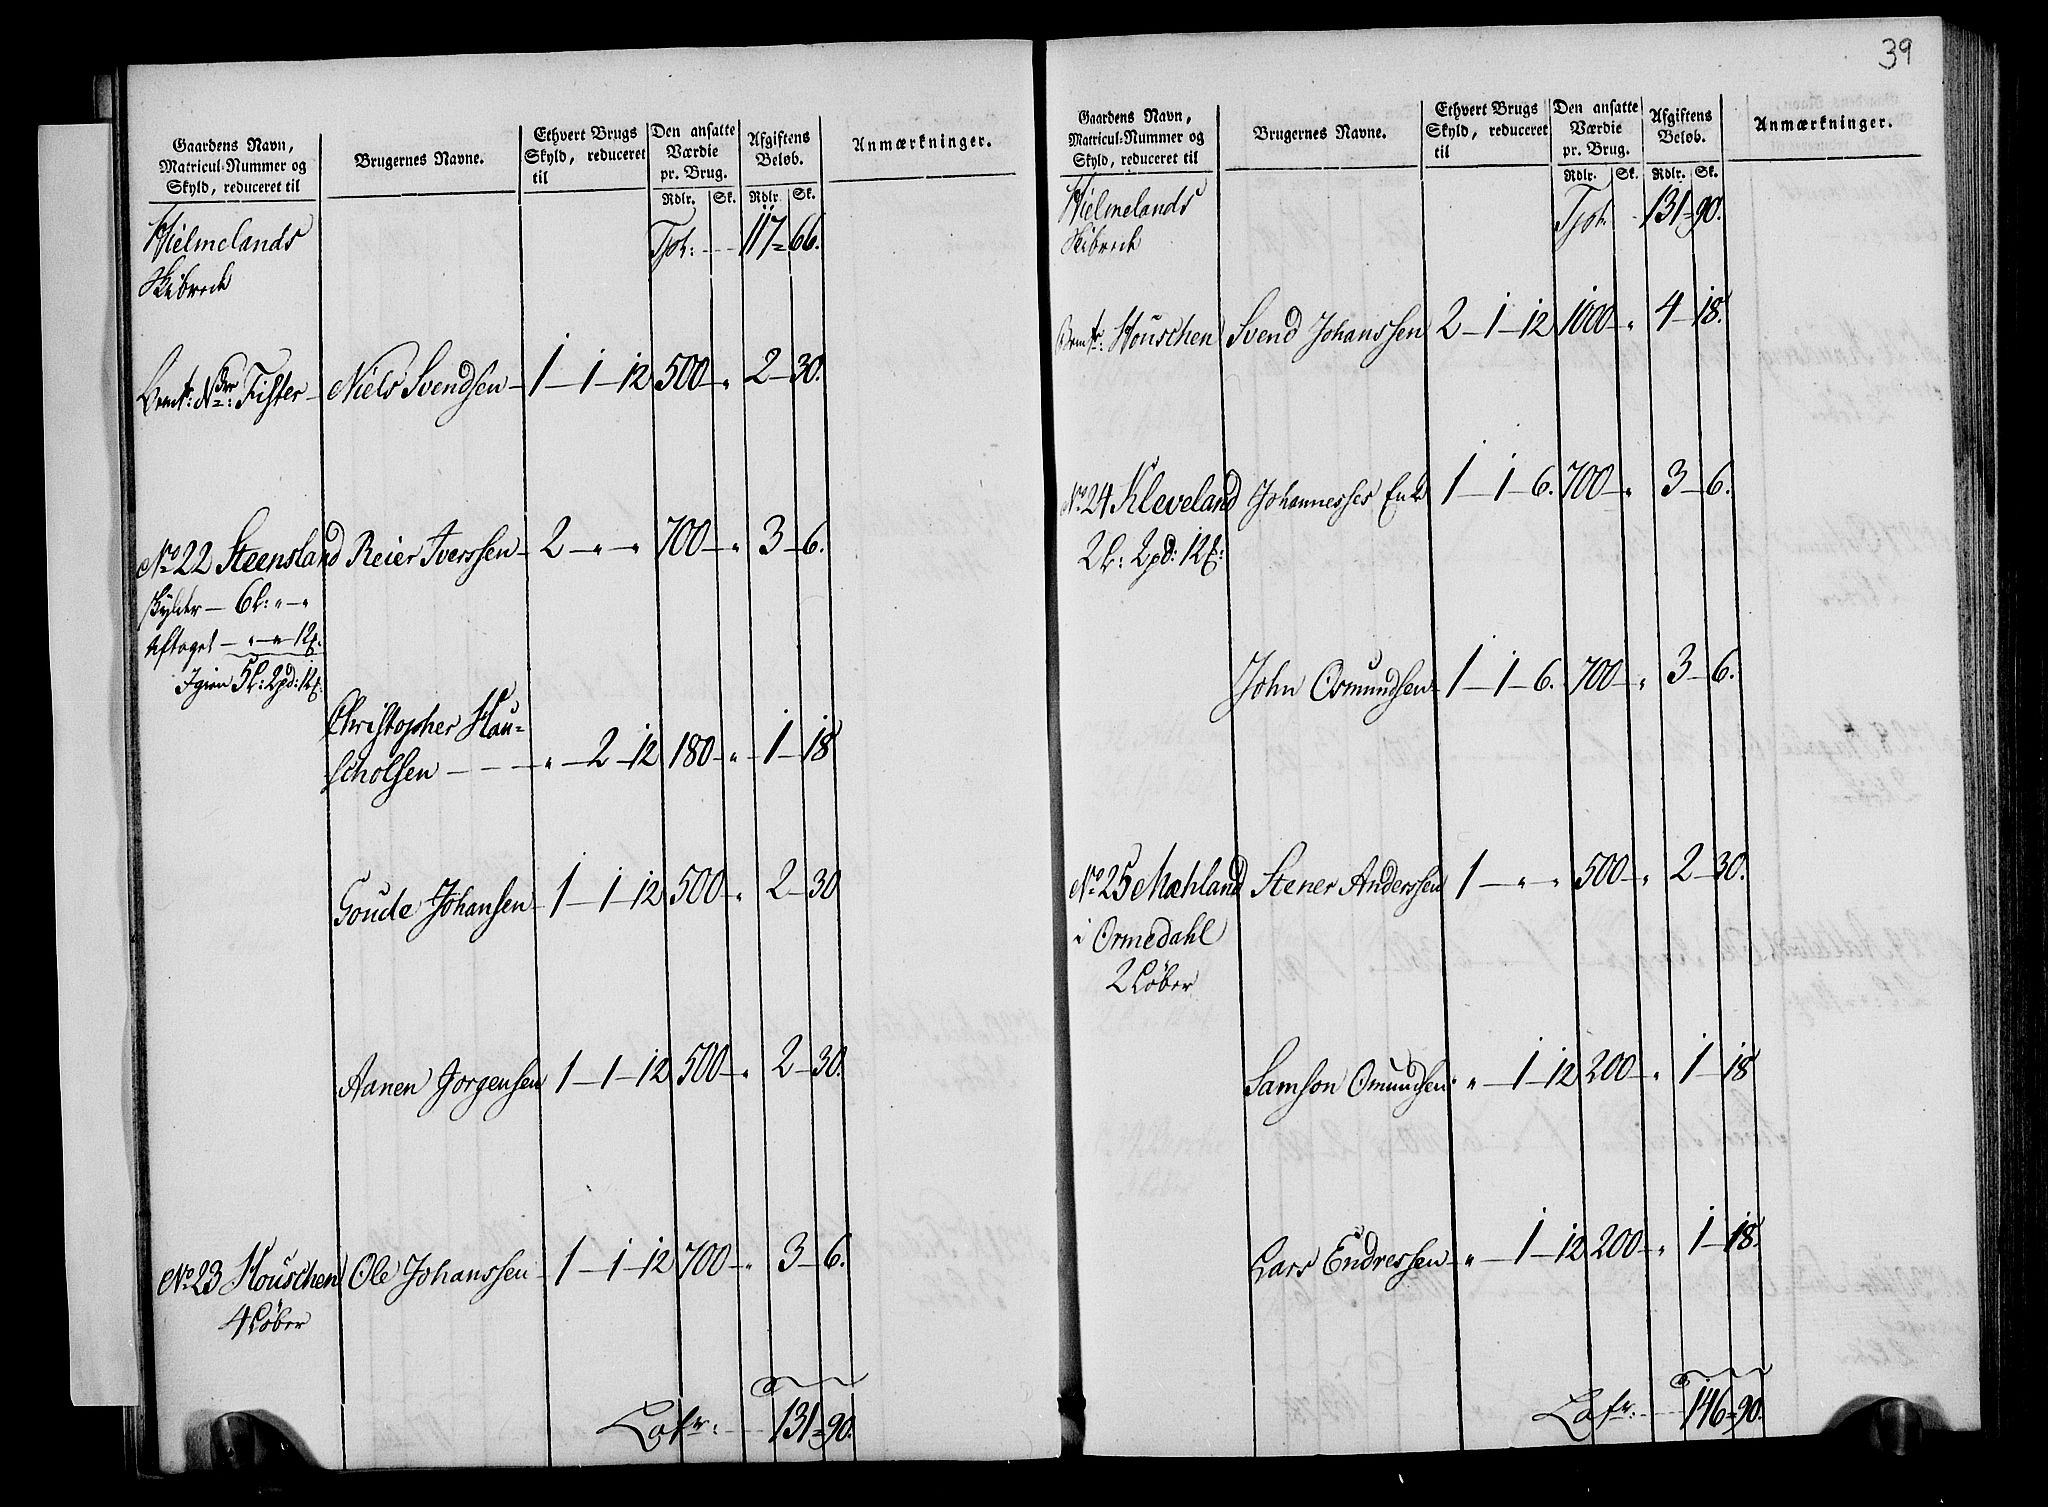 Gaardens Navn,
Matricul-Nummer og
Skyld, reduceret til
Brugernes Navne.
Ethvert Brugs
Skyld, reduceret
til
Den ansatte
Værdie
pr. Brug.
Afgiftens
Beløb.
Anmærkninger.
Rdlr. Sk. Rdlr. Sk.
Hielmelands Tpt: 117 = 66.
Skibrede
Bemt: Ndr: Fister Niels Svendsen 1 — 1 — 12 500 — „ 2 — 30.
No 22 Steensland Reier Iverssen 2 — „ — „ 700 — „ 3 — 6.
Skylder — 6 l: „ — „
Aftaget — „ — „ — 12 ß:
Igien 5 l: 2 pd: 12 ß:
Christopher Hau-
scholsen — — — „ — 2 — 12 180 — „ 1 — 18
Goude Johansen 1 — 1 — 12 500 — „ 2 — 30
Aanen Jorgensen 1 — 1 — 12 500 — „ 2 — 30.
No 23 Houschen Ole Johanssen 1 — 1 — 12 700 — „ 3 — 6.
4 Löber
Laꝭr: 131 = 90.
39
Gaardens Navn,
Matricul-Nummer og
Skyld, reduceret til
Brugernes Navne.
Ethvert Brugs
Skyld, reduceret
til
Den ansatte
Værdie
pr. Brug.
Afgiftens
Beløb.
Anmærkninger.
Rdlr. Sk. Rdlr. Sk.
Hielmelands Tpt: 131 = 90.
Skibrede
Bemt: Houschen Svend Johanssen 2 — 1 — 12 1000 — „ 4 — 18.
No 24 Kleveland Johannesses Enke 1 — 1 — 6. 700 — „ 3 — 6.
2 l: 2 pd: 12 ß:
John Osmundsen 1 — 1 — 6. 700 — „ 3 — 6.
No 25 Mæhland Stener Anderssen 1 — „ — „ 500 — „ 2 — 30.
i Ormedahl
2 Löber
Samson Omundsen „ — 1 — 12 200 — „ 1 — 18
Lars Endressen „ — 1 — 12 200 — „ 1 — 18.
146 = 90.